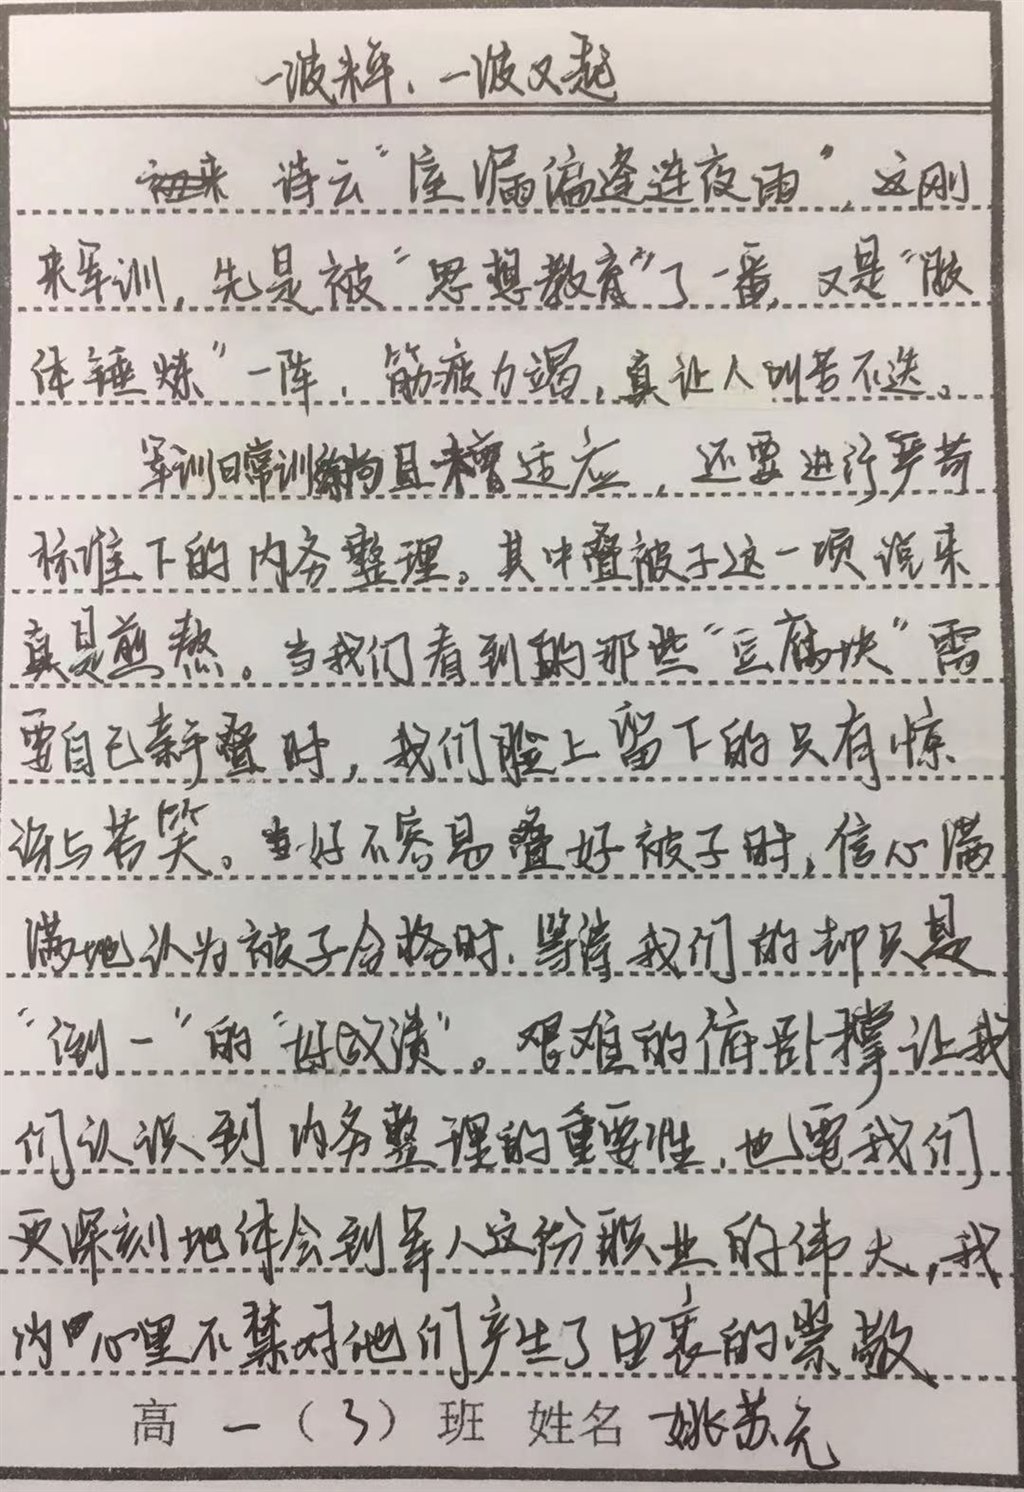 一波未平、一波又起
诗云“屋漏偏逢连夜雨”，这刚
来军训，先是被“思想教育”了一番，又是“肢
体锤炼”一阵，筋疲力竭，真让人叫苦不迭。
军训日常训练尚且未曾适应，还要进行严苛
标准下的内务整理。其中叠被子这一项说来
真是煎熬。当我们看到的那些“豆腐块”需
要自己亲手叠时，我们脸上留下的只有惊
讶与苦笑。当好不容易叠好被子时，信心满
满地认为被子合格时，等待我们的却只是
“倒一”的“好成绩”。艰难的俯卧撑让我
们认识到内务整理的重要性，也让我们
更深刻地体会到军人这份职业的伟大，我
内心里不禁对他们产生了由衷的崇敬
高一（3）班 姓名 姚苏元